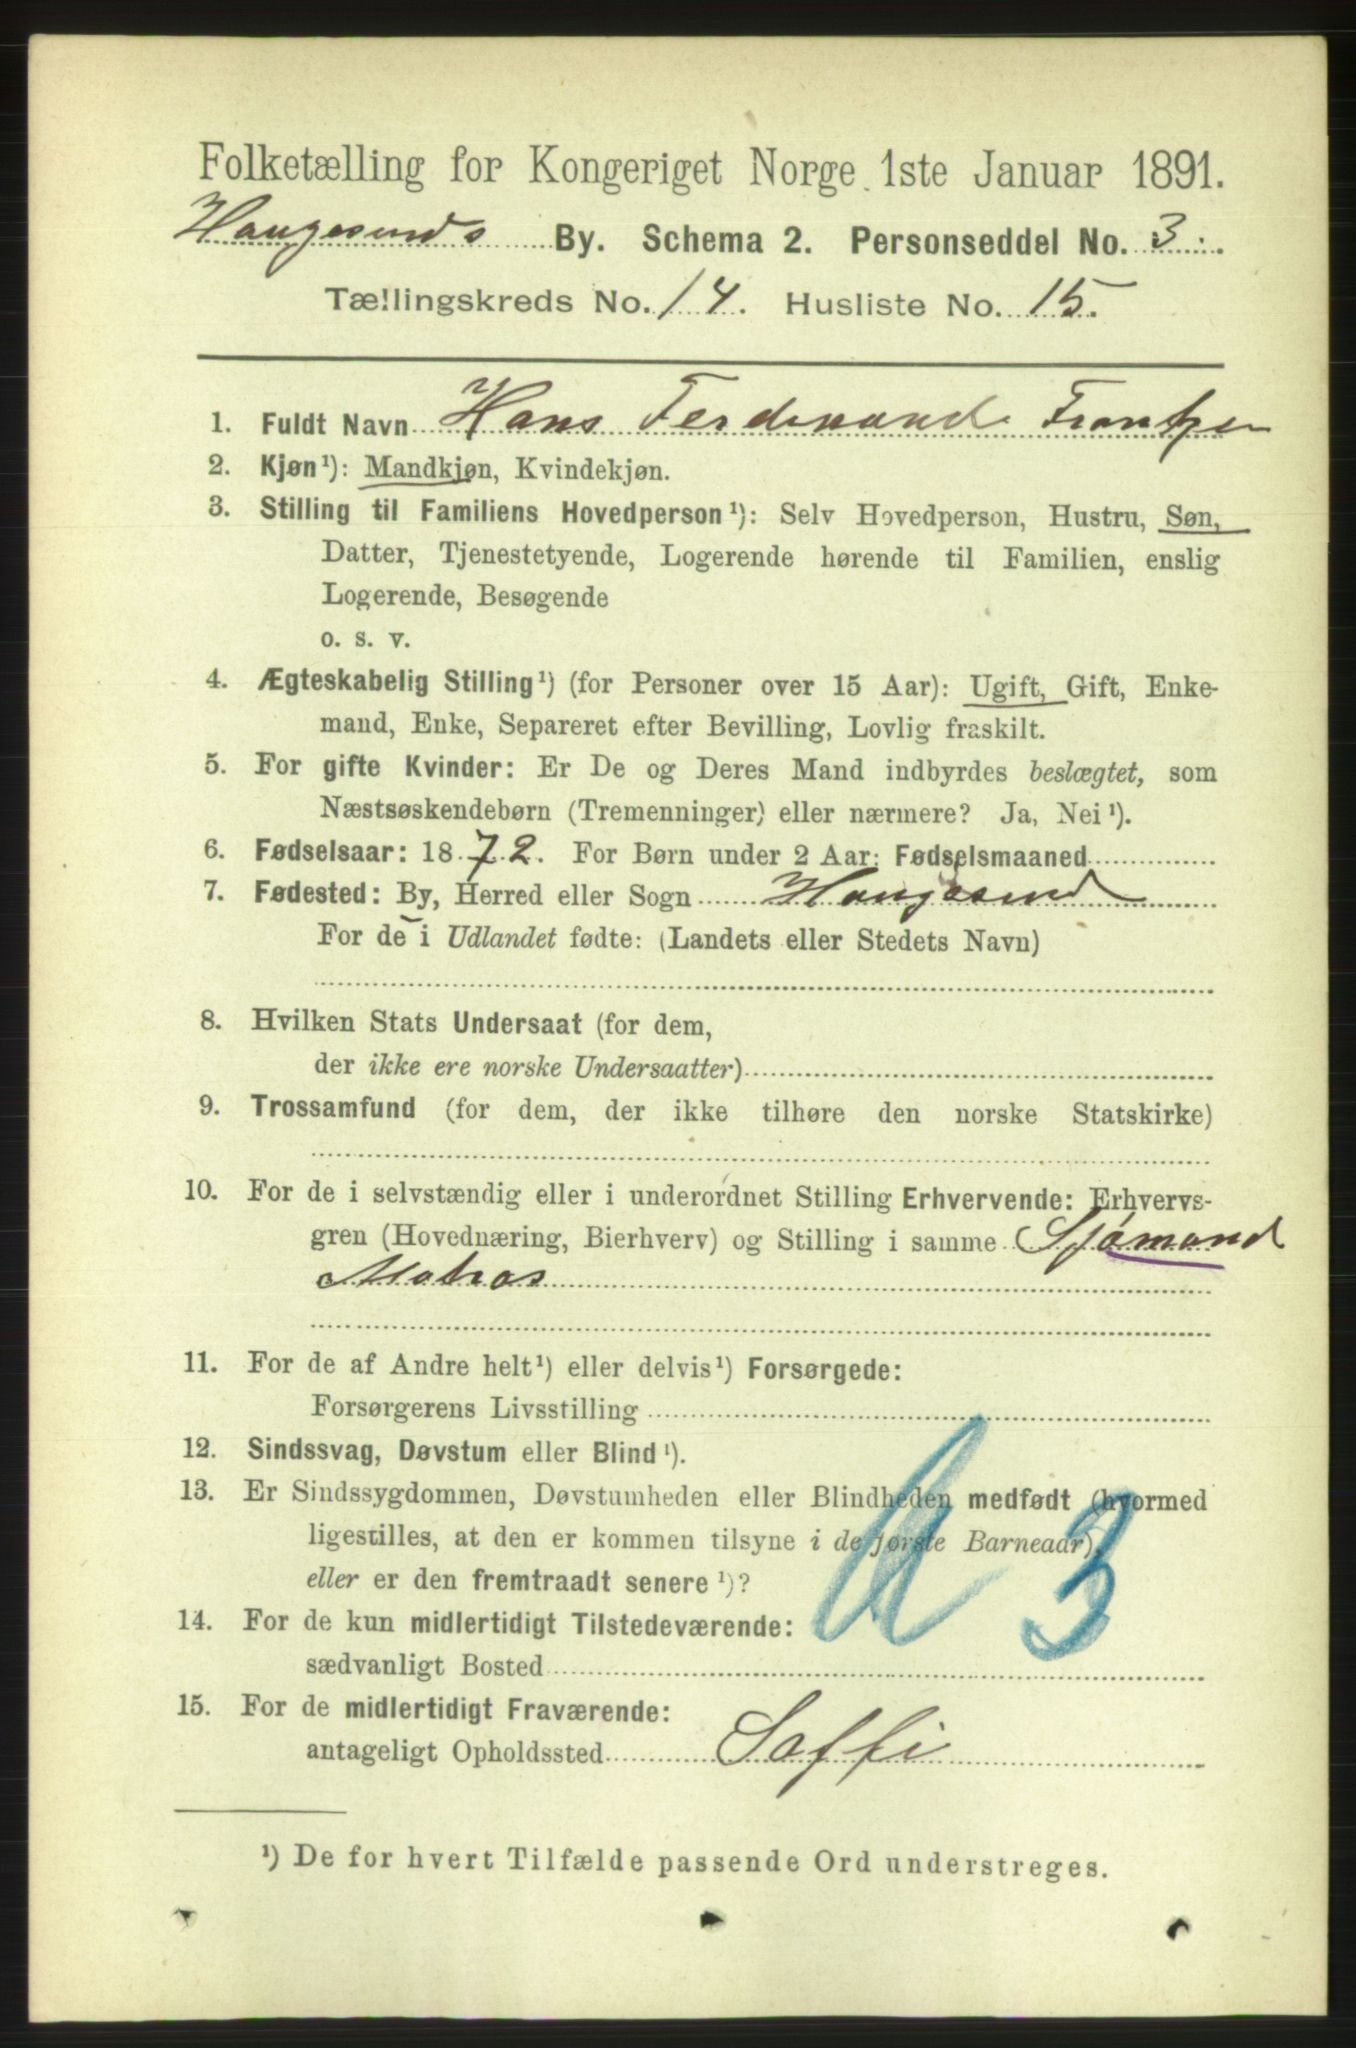 Folketælling for Kongeriget Norge 1ste Januar 1891.
Haugesunds By. Schema 2. Personseddel No. 3.
Tællingskreds No. 14. Husliste No. 15.
1. Fuldt Navn Hans Ferdinand Frantzen
2. Kjøn¹): Mandkjøn, Kvindekjøn.
3. Stilling til Familiens Hovedperson¹): Selv Hovedperson, Hustru, Søn,
Datter, Tjenestetyende, Logerende hørende til Familien, enslig
Logerende, Besøgende
o. s. v.
4. Ægteskabelig Stilling¹) (for Personer over 15 Aar): Ugift, Gift, Enke-
mand, Enke, Separeret efter Bevilling, Lovlig fraskilt.
5. For gifte Kvinder: Er De og Deres Mand indbyrdes beslægtet, som
Næstsøskendebørn (Tremenninger) eller nærmere? Ja, Nei¹).
6. Fødselsaar: 1872. For Børn under 2 Aar: Fødselsmaaned
7. Fødested: By, Herred eller Sogn Haugesund
For de i Udlandet fødte: (Landets eller Stedets Navn)
8. Hvilken Stats Undersaat (for dem,
der ikke ere norske Undersaatter)
9. Trossamfund (for dem, der ikke tilhøre den norske Statskirke)
10. For de i selvstændig eller i underordnet Stilling Erhvervende: Erhvervs-
gren (Hovednæring, Bierhverv) og Stilling i samme Sjømand
Matros
11. For de af Andre helt¹) eller delvis¹) Forsørgede:
Forsørgerens Livsstilling
12. Sindssvag, Døvstum eller Blind¹).
13. Er Sindssygdommen, Døvstumheden eller Blindheden medfødt (hvormed
ligestilles, at den er kommen tilsyne i de første Barneaar),
eller er den fremtraadt senere¹)?
14. For de kun midlertidigt Tilstedeværende:
sædvanligt Bosted
15. For de midlertidigt Fraværende:
antageligt Opholdssted Saffi
¹) De for hvert Tilfælde passende Ord understreges.
3